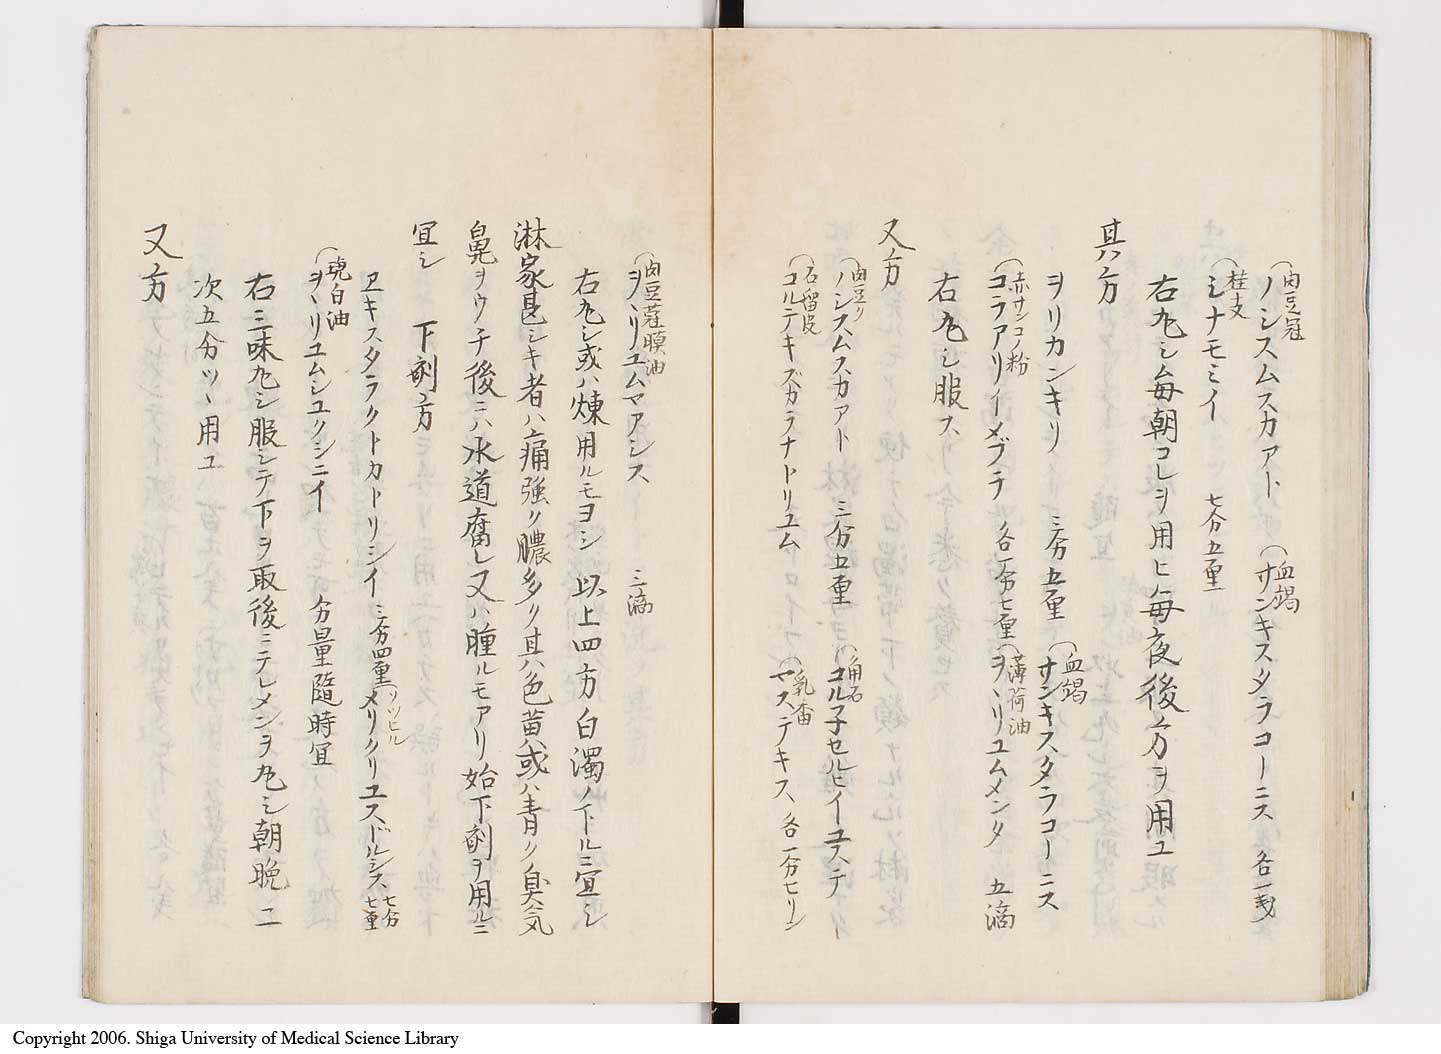 (肉豆冠
ノシスムスカアト (血竭 サンキスタラコーニス 各一戔
(桂支
シナモミイ 七分五厘
右丸シ毎朝コレヲ用ヒ毎夜後方ヲ用ユ
其ハ方
ヲリカンキリ 三分五厘 (血竭 サンキスタラコーニス
(赤サンコノ粉
コラアリイメブテ 各一分七厘 (薄荷油 ヲヽリユムメンタ 五滴
右丸シ服ス
又方
(肉豆ク
ノシスムスカアト 三分五厘 (角石 コル子セルヒイユステ
(石留皮
コルテキズガラナトリユム (乳香 マステキス 各一分七リン
(肉豆蔲膜油
ヲヽリユムマアシス 三滴
右丸シ或ハ煉用ルモヨシ 以上四方白濁ノ下ルニ宜シ
淋家甚シキ者ハ痛強ク膿多ク其ハ色黄ハ或ハ青ク臭気
鼻ヲウチ後ニハ水道腐レ又ハ腫ルモアリ始下剤ヲ用ルニ
宜シ 下剤方
ヱキスタラクトカトリシイ 三分四厘 ソツヒル メリクリユスドルシス 七分七厘
(琥白油
ヲヽリユムシユクシニイ 分量隨時宜
右三味丸シ服シテ下ヲ取後ニテレメンヲ丸シ朝晩ニ
次五分ツヽ用ユ
又方
Copyright 2006. Shiga University of Medical Science Library